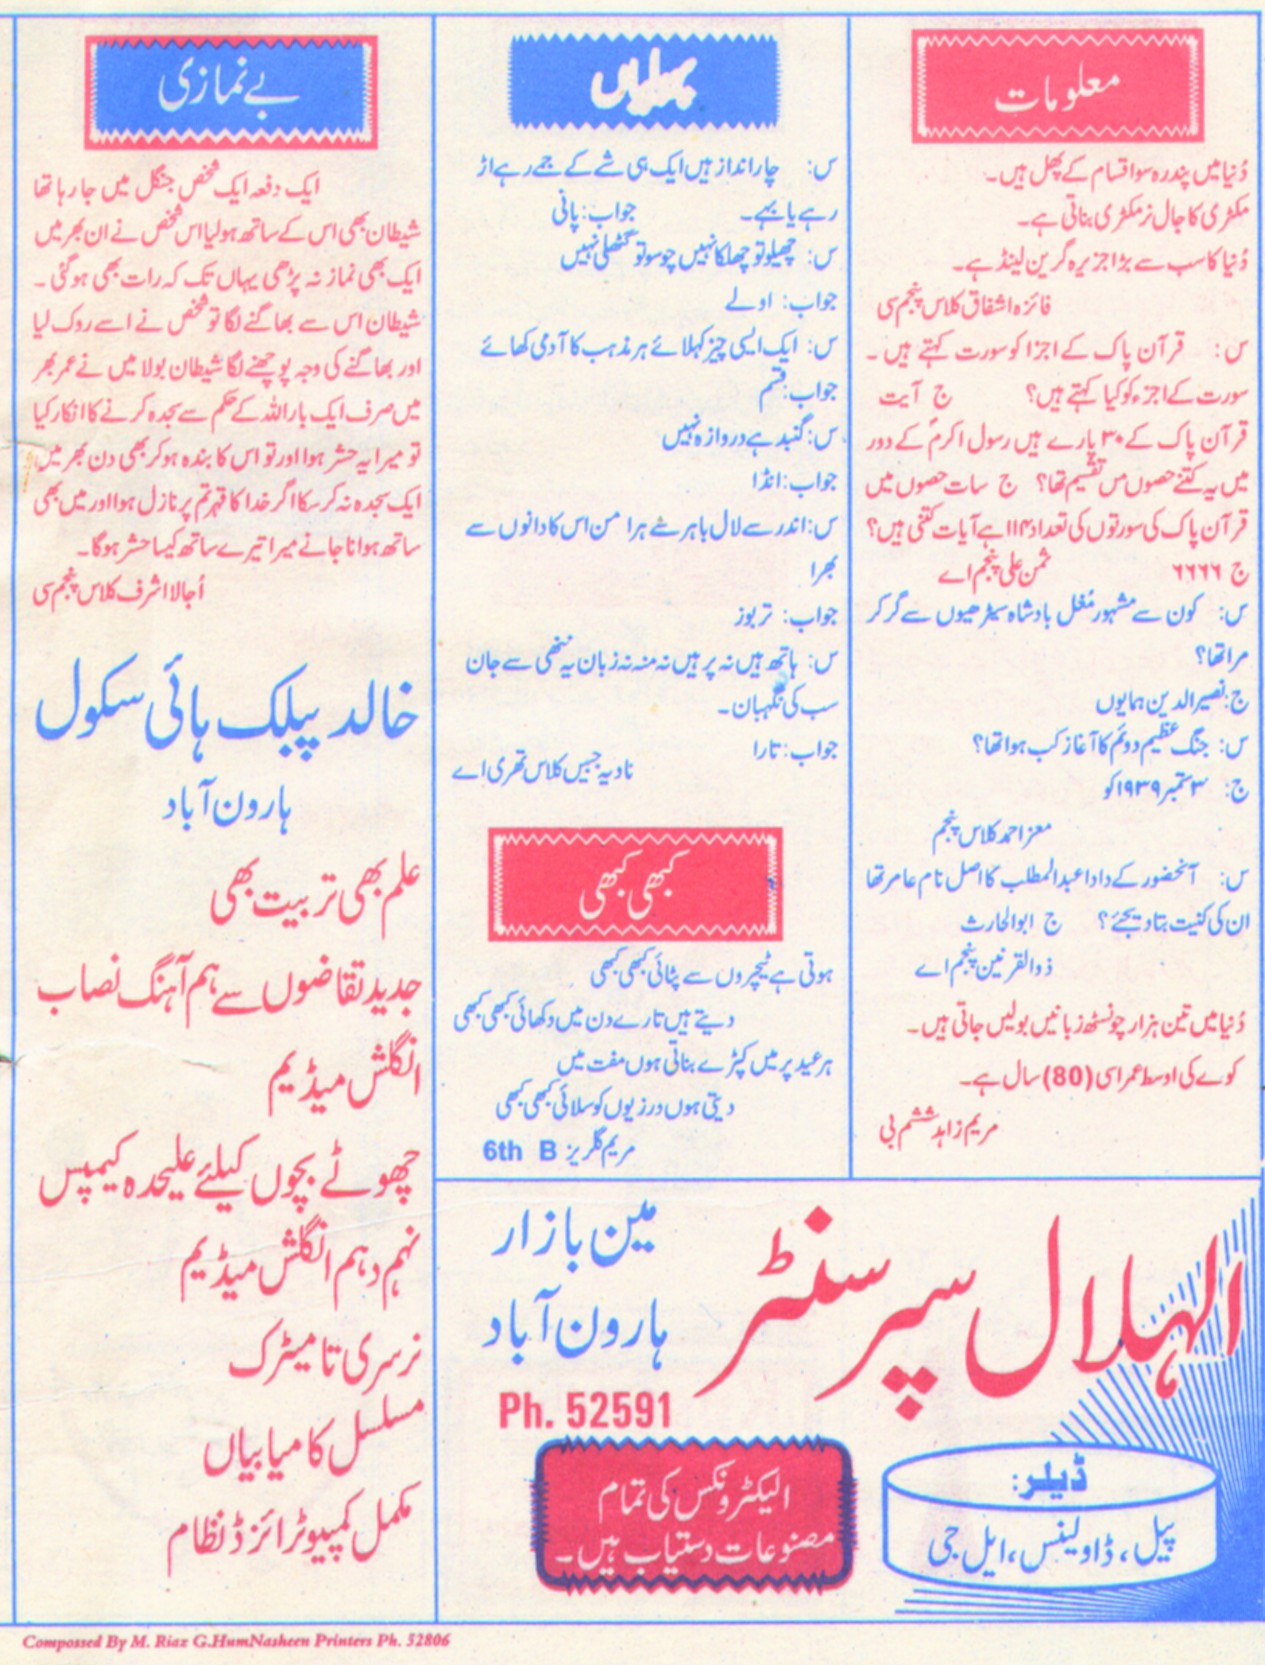 معلومات
دُنیا میں پندرہ سو اقسام کے پھل ہیں۔
مکڑی کا جال نر مکڑی بناتی ہے۔
دُنیا کا سب سے بڑا جزیرہ گرین لینڈ ہے۔
فائزہ اشفاق کلاس پنجم سی
س: قرآن پاک کے اجزا کو سورت کہتے ہیں۔
سورت کے اجزء کو کیا کہتے ہیں؟ ج آیت
قرآن پاک کے ۳۰ پارے ہیں رسول اکرمؐ کے دور
میں یہ کتنے حصوں مں تقسیم تھا؟ ج سات حصوں میں
قرآن پاک کی سورتوں کی تعداد ۱۱۴ ہے آیات کتنی ہیں؟
ج ۶۶۶۶ ثمن علی پنجم اے
س: کون سے مشہور مُغل بادشاہ سیڑھیوں سے گر کر
مرا تھا؟
ج: نصیر الدین ہمایوں
س: جنگ عظیم دوئم کا آغاز کب ہوا تھا؟
ج: ۳ ستمبر ۱۹۳۹ کو
معز احمد کلاس پنجم
س: آنحضور کے دادا عبدالمطلب کا اصل نام عامر تھا
ان کی کنیت بتا دیجئے؟ ج ابوالحارث
ذوالقرنین پنجم اے
دُنیا میں تین ہزار چونسٹھ زبانیں بولیں جاتی ہیں۔
کوے کی اوسط عمر اسی (80) سال ہے۔
مریم زاہد ششم بی
پہیلیاں
س: چار انداز ہیں ایک ہی شے کے جمے رہے اڑ
رہے یا بہے۔ جواب: پانی
س: چھیلو تو چھلکا نہیں چوسو تو گٹھلی نہیں
جواب: اولے
س: ایک ایسی چیز کہلائے ہر مذہب کا آدمی کھائے
جواب: قسم
س: گنبد ہے دروازہ نہیں
جواب: انڈا
س: اندر سے لال باہر سے ہرا من اس کا دانوں سے
بھرا
جواب: تربوز
س: ہاتھ ہیں نہ پر ہیں نہ منہ نہ زبان یہ ننھی سے جان
سب کی نگہبان۔
جواب: تارا
نادیہ جبیں کلاس تھری اے
کبھی کبھی
ہوتی ہے ٹیچروں سے پٹائی کبھی کبھی
دیتے ہیں تارے دن میں دکھائی کبھی کبھی
ہر عید پر میں کپڑے بناتی ہوں مفت میں
دیتی ہوں درزیوں کو سلائی کبھی کبھی
مریم گلریز 6th B
بے نمازی
ایک دفعہ ایک شخص جنگل میں جا رہا تھا
شیطان بھی اس کے ساتھ ہو لیا اس شخص نے ان بھر میں
ایک بھی نماز نہ پڑھی یہاں تک کہ رات بھی ہو گئی۔
شیطان اس سے بھاگنے لگا تو شخص نے اسے روک لیا
اور بھاگنے کی وجہ پوچھنے لگا شیطان بولا میں نے عمر بھر
میں صرف ایک بار اللہ کے حکم سے سجدہ کرنے کا انکار کیا
تو میرا یہ حشر ہوا اور تو اس کا بندہ ہو کر بھی دن بھر میں
ایک سجدہ نہ کر سکا اگر خدا کا قہر تم پر نازل ہوا اور میں بھی
ساتھ ہوا نا جانے میرا تیرے ساتھ کیسا حشر ہو گا۔
اُجالا اشرف کلاس پنجم سی
خالد پبلک ہائی سکول
ہارون آباد
علم بھی تربیت بھی
جدید تقاضوں سے ہم آہنگ نصاب
انگلش میڈیم
چھوٹے بچوں کیلئے علیحدہ کیمپس
نہم دہم انگلش میڈیم
نرسری تا میٹرک
مسلسل کامیابیاں
مکمل کمپیوٹرائزڈ نظام
الہلال سپر سنٹر
مین بازار
ہارون آباد
Ph. 52591
ڈیلر:
پیل، ڈاولینس، ایل جی
الیکٹرونکس کی تمام
مصنوعات دستیاب ہیں۔
Compossed By M. Riaz G.HumNasheen Printers Ph. 52806